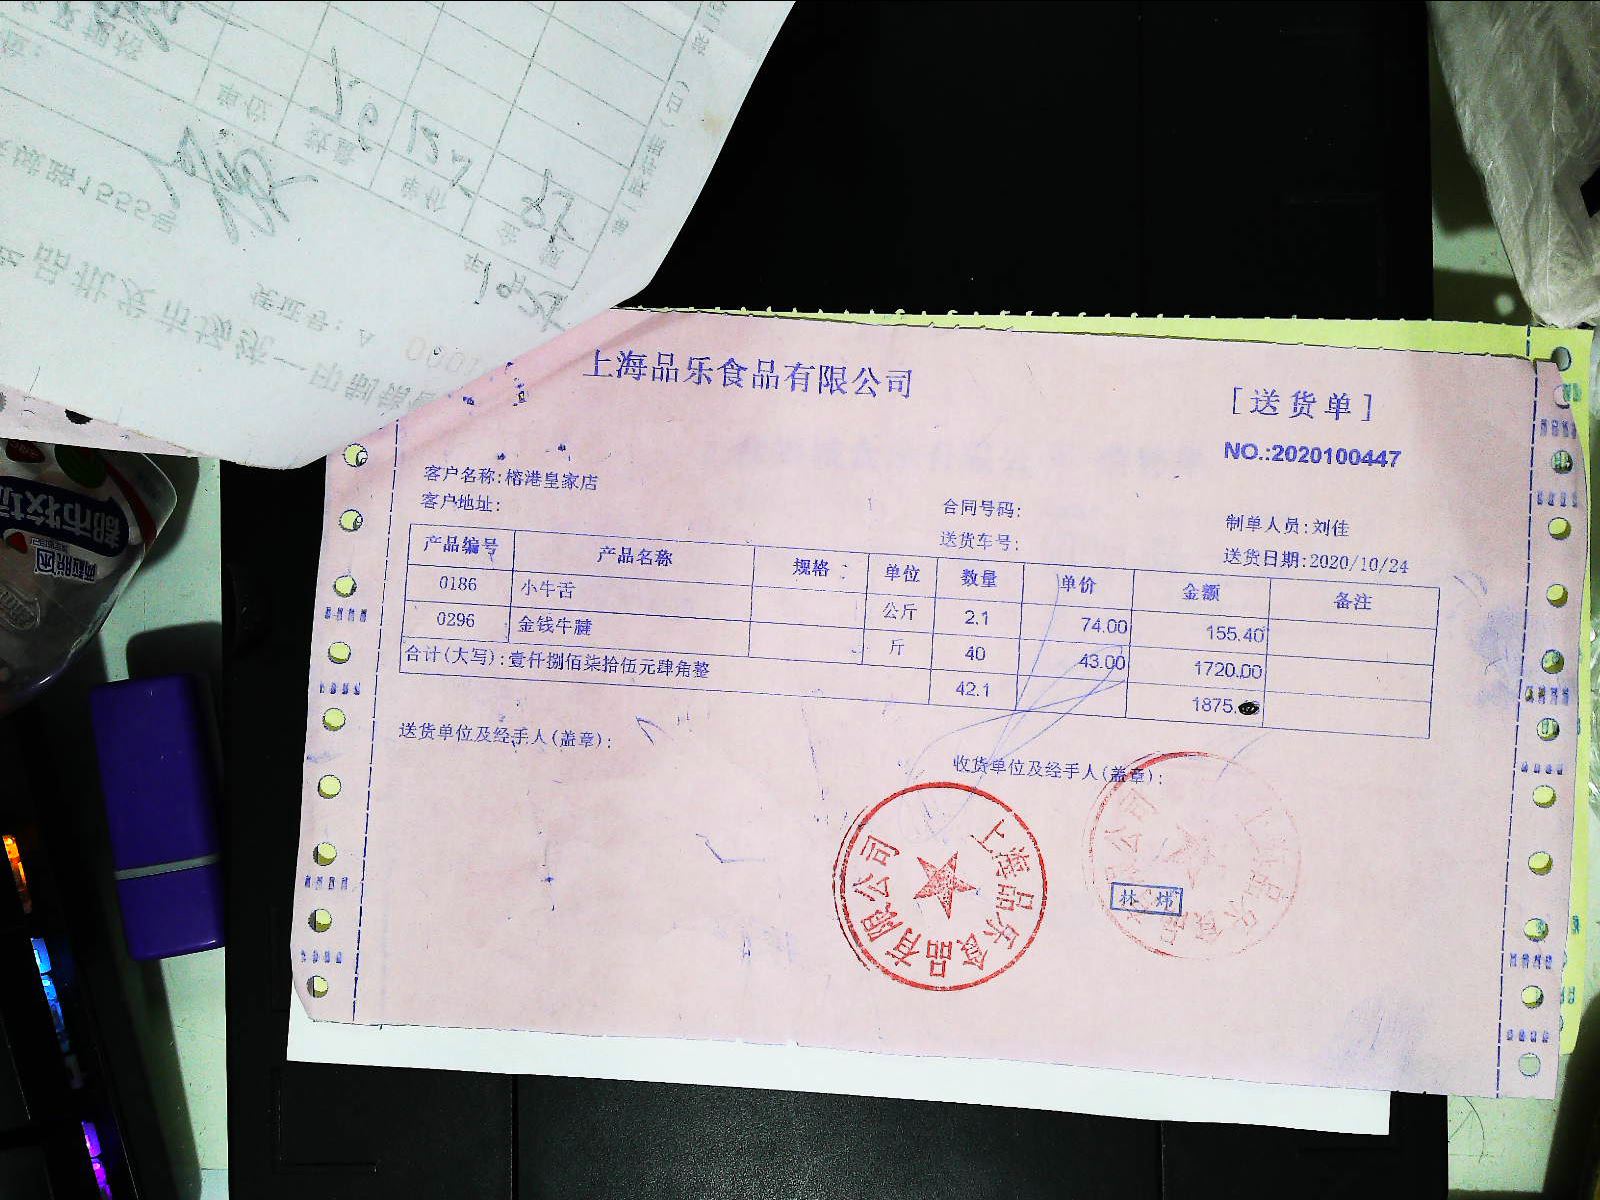 上海品乐食品有限公司
[送货单]
NO.:2020100447
客户名称:榕港皇家店
客户地址:
合同号码:
送货车号:
制单人员:刘佳
送货日期:2020/10/24
产品编号 产品名称 规格: 单位 数量 单价 金额 备注
0186 小牛舌 公斤 2.1 74.00 155.40
0296 金钱牛腱 斤 40 43.00 1720.00
合计(大写):壹仟捌佰柒拾伍元肆角整 42.1 1875.
送货单位及经手人(盖章):
收货单位及经手人(盖章):
上海品乐食品有限公司
林炜
品批发市场统一印制
证号: A
1555号
单价
数量
金额